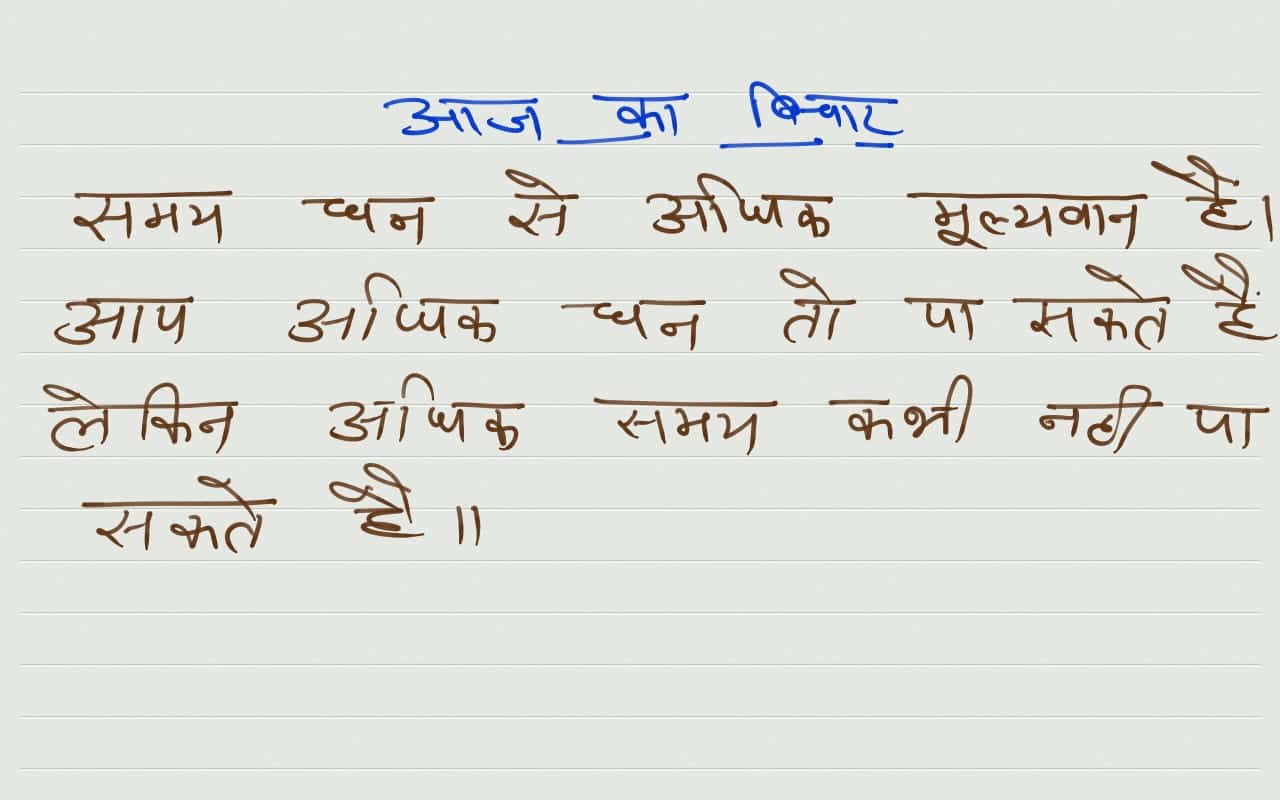 आज का विचार
समय धन से अधिक मूल्यवान है।
आप अधिक धन तो पा सकते हैं
लेकिन अधिक समय कभी नही पा
सकते है ॥